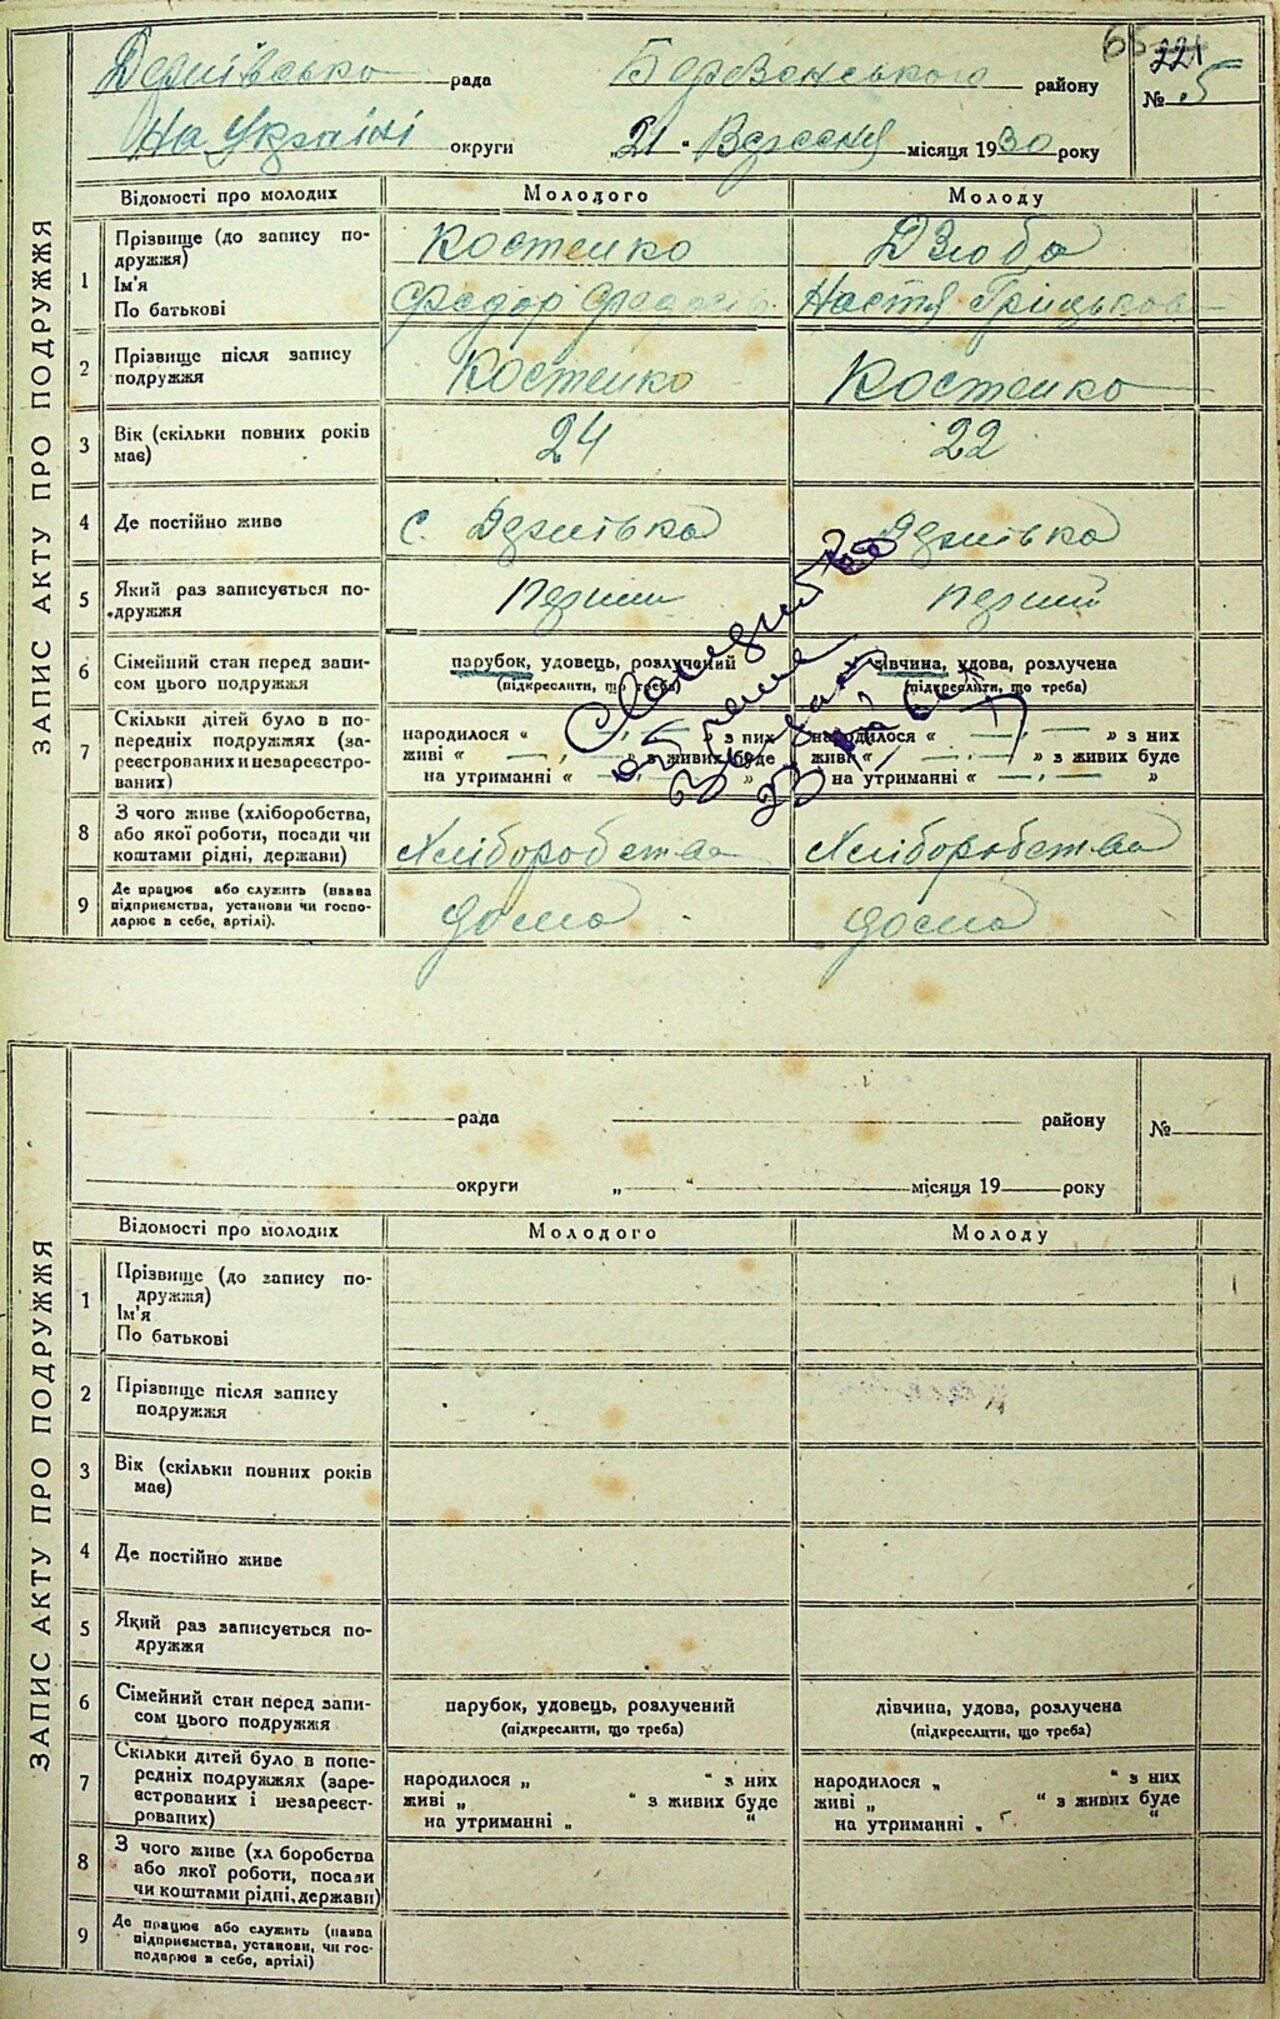 65 221
Дернівсько рада Березанського району № 5
На Україні округи „21“ Вересня місяця 1930 року
ЗАПИС АКТУ ПРО ПОДРУЖЖЯ
Відомості про молодих Молодого Молоду
1 Прізвище (до запису подружжя) Костенко Дзюба
Ім'я
По батькові Федор Настя Грицьков
2 Прізвище після запису подружжя Костенко Костенко
3 Вік (скільки повних років має) 24 22
4 Де постійно живе с. Дернівка Дернівка
5 Який раз записується подружжя перший перший
6 Сімейний стан перед записом цього подружжя парубок, удовець, розлучений дівчина, удова, розлучена
(підкреслити, що треба) (підкреслити, що треба)
7 Скільки дітей було в попередніх подружжях (зареєстрованих и незареєстрованих)
народилося « — , — » з них народилося « — , — » з них
живі « — , — » з живих буде живі « — , — » з живих буде
на утриманні « — , — » на утриманні « — , — »
8 З чого живе (хліборобства, або якої роботи, посади чи коштами рідні, держави) Хліборобства Хліборобства
9 Де працює або служить (назва підприємства, установи чи господарює в себе, артілі). дома дома
ЗАПИС АКТУ ПРО ПОДРУЖЖЯ
рада району №
округи „ “ місяця 19 року
Відомості про молодих Молодого Молоду
1 Прізвище (до запису подружжя)
Ім'я
По батькові
2 Прізвище після запису подружжя
3 Вік (скільки повних років має)
4 Де постійно живе
5 Який раз записується подружжя
6 Сімейний стан перед записом цього подружжя парубок, удовець, розлучений дівчина, удова, розлучена
(підкреслити, що треба) (підкреслити, що треба)
7 Скільки дітей було в попередніх подружжях (зареєстрованих і незареєстрованих)
народилося „ “ з них народилося „ “ з них
живі „ “ з живих буде живі „ “ з живих буде
на утриманні „ “ на утриманні „ “
8 З чого живе (хл боробства або якої роботи, посади чи коштами рідні, держави)
9 Де працює або служить (назва підприємства, установи, чи господарює в себе, артілі)